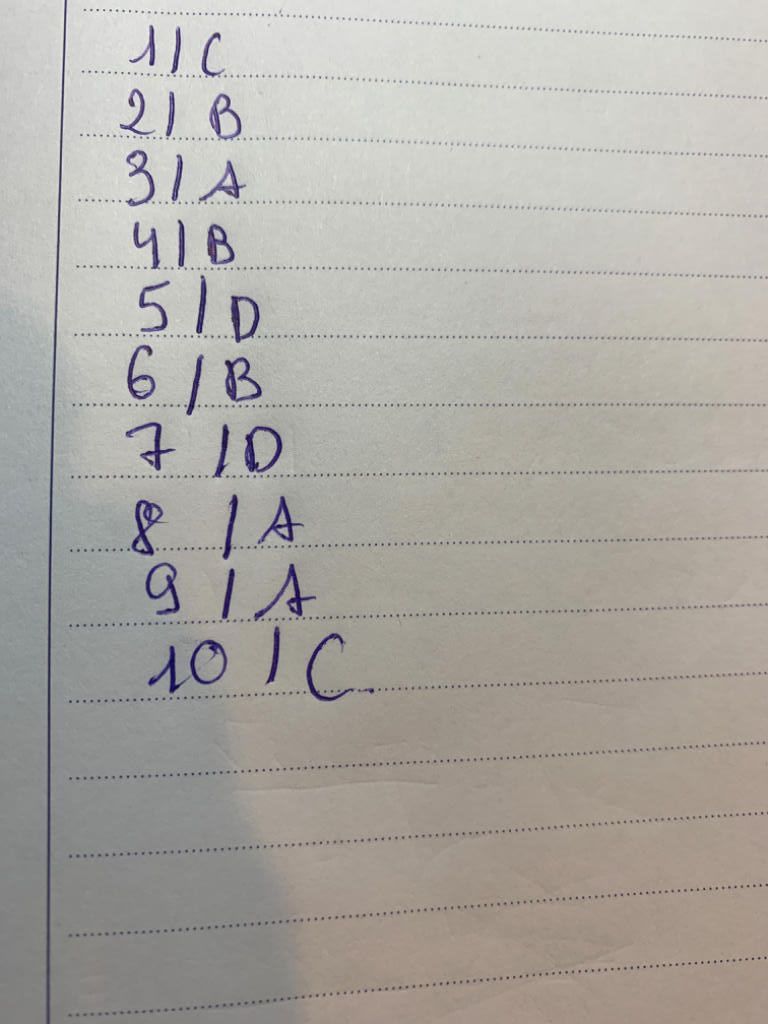 1/ C
2/ B
3/ A
4/ B
5 / D
6 / B
7 / D
8 / A
9 / A
10 / C.